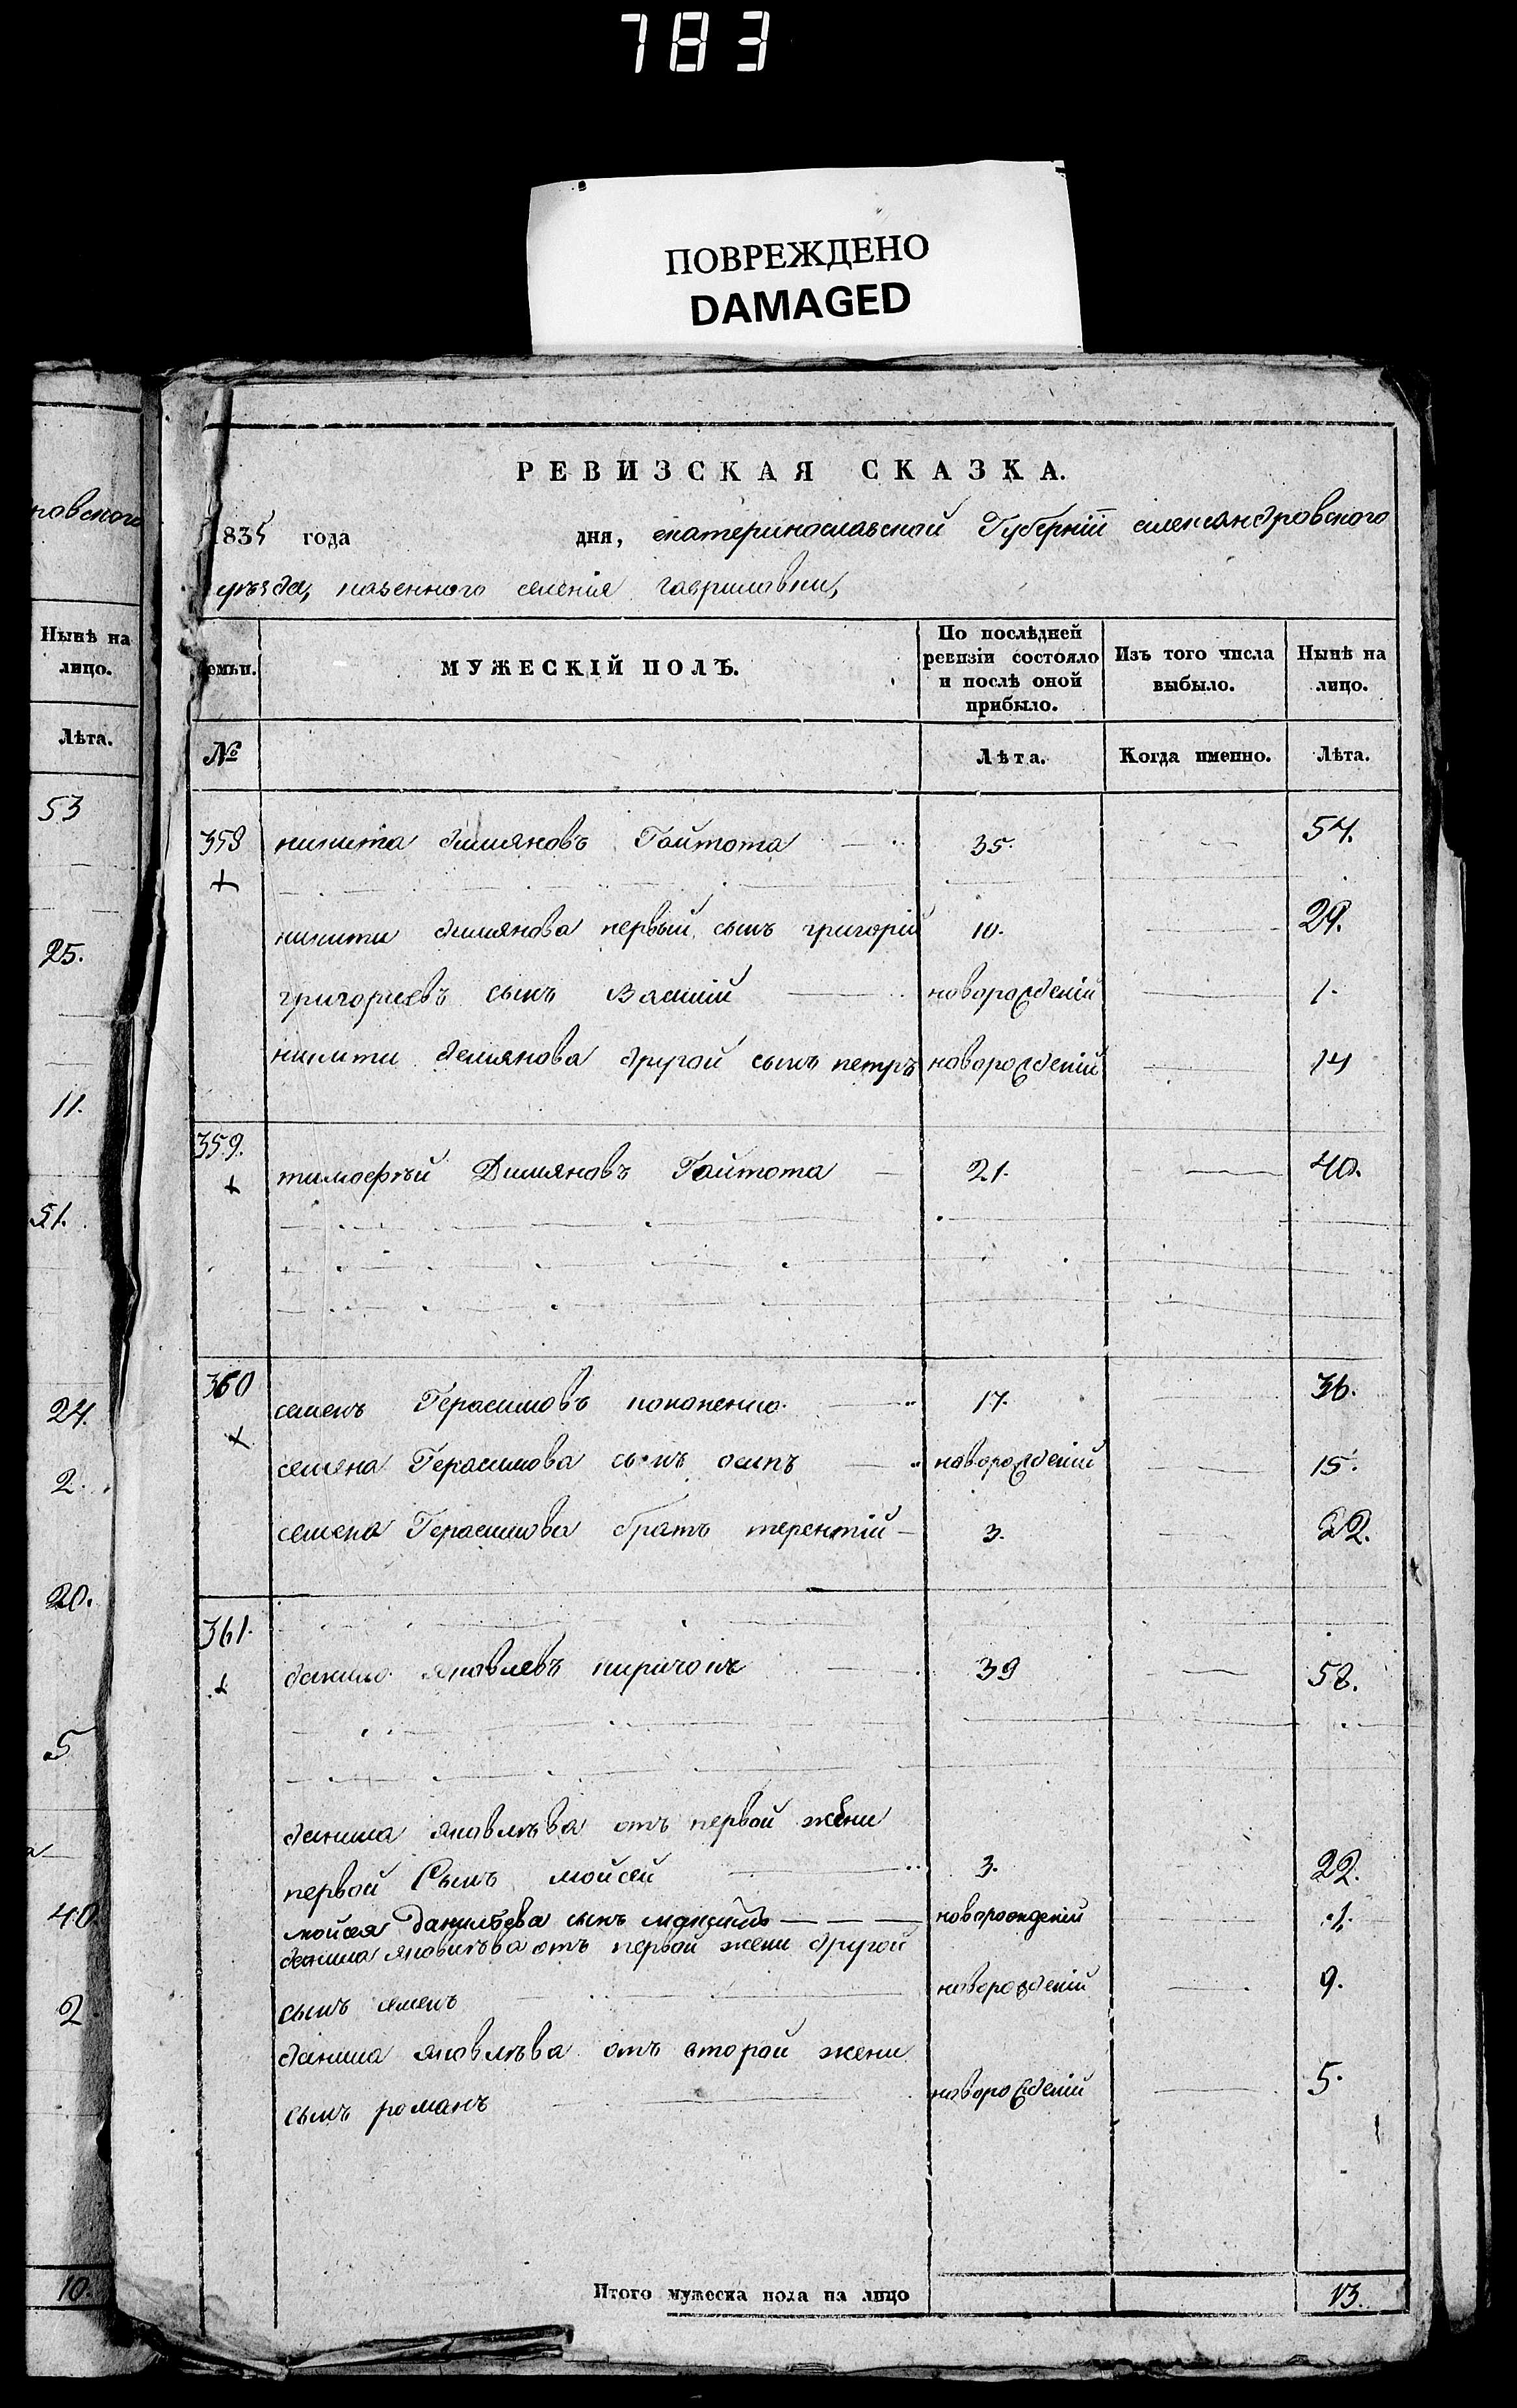 783
ПОВРЕЖДЕНО
DAMAGED
РЕВИЗСКАЯ СКАЗКА.
1835 года дня, екатеринославской Губерніи александровского
уѣзда, казенного селенія гавриловки,
семьи. МУЖЕСКІЙ ПОЛЪ. По послѣдней ревизіи состояло и послѣ оной прибыло. Изъ того числа выбыло. Нынѣ на лицо.
№ Лѣта. Когда именно. Лѣта.
358 никита димяновъ Гайтота 35. 54.
никити димянова первый сынъ григорій 10. 29.
григориевъ сынъ Василій новорожденій 1.
никити демянова другой сынъ петръ новорожденій 14
359. тимофѣй Димяновъ Гайтота 21. 40.
360 семенъ Герасимовъ кононенко 17. 36.
семена Герасимова сынъ осипъ новорожденій 15.
семена Герасимова братъ терентій 3. 22.
361. данило яковлевъ киричокъ 39 58.
данила яковлѣва отъ первой жени
первой Сынъ мойсей 3. 22.
мойсея Данилѣева сынъ максимъ новорожденій 1.
данила яковлѣва отъ первой жени другой
сынъ семенъ новорожденій 9.
данила яковлѣва отъ второй жени
сынъ романъ новорожденій 5.
Итого мужеска пола на лицо 13.
ровского
Нынѣ на
лицо.
Лѣта.
53
25.
11.
51.
24.
2.
20.
5
40
2
10.